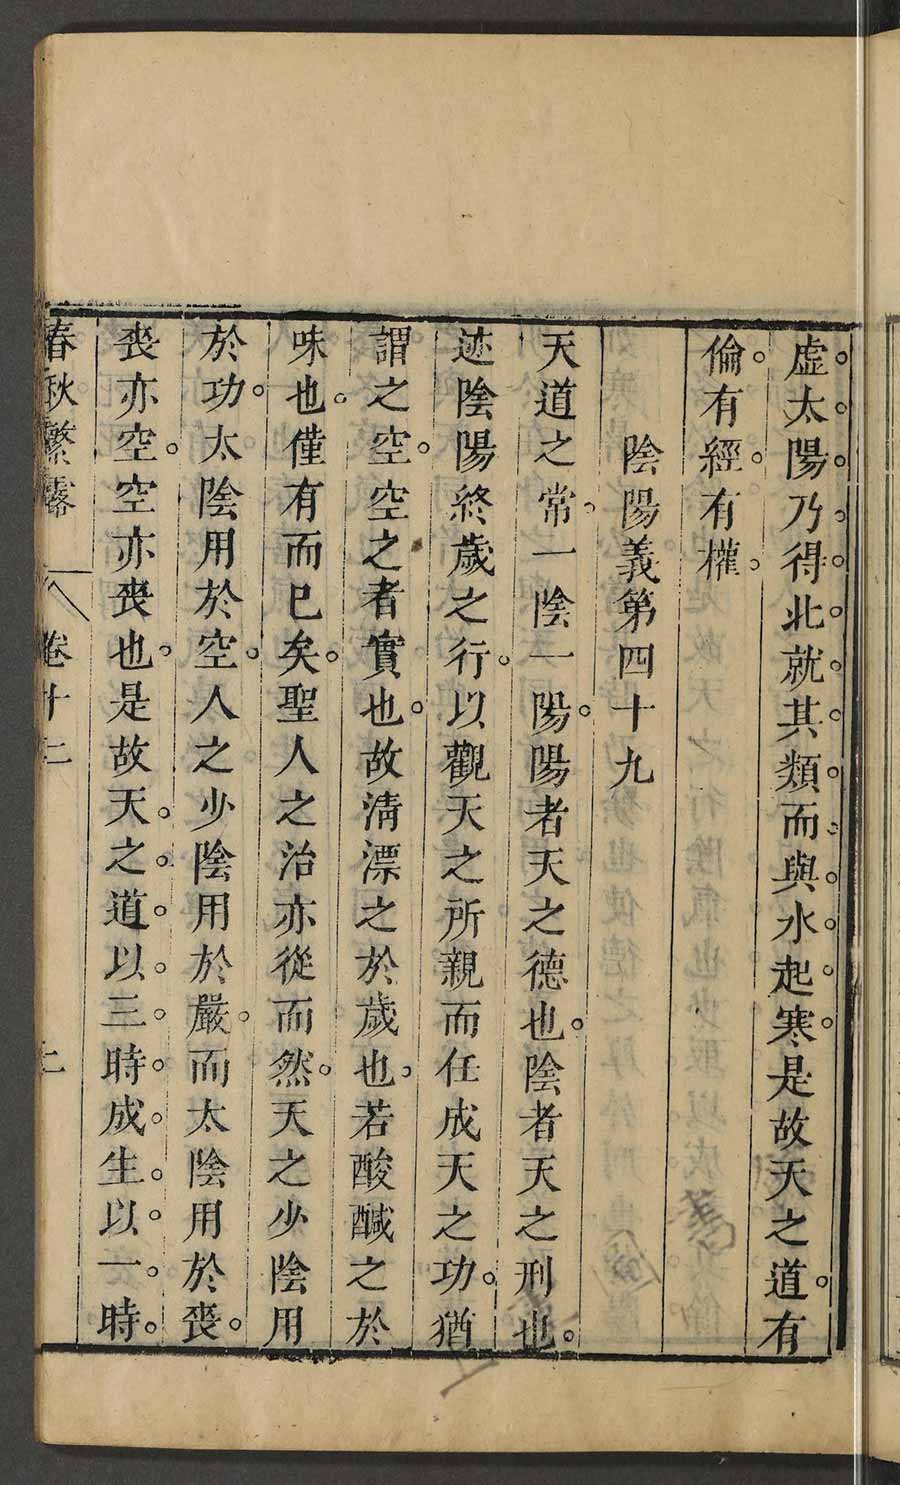 虛太陽乃得北就其類而與水起寒是故天之道有
倫有經有權
陰陽義第四十九
天道之常一陰一陽陽者天之德也陰者天之刑也
迹陰陽終歲之行以觀天之所親而任成天之功猶
謂之空空之者實也故清漂之於歲也若酸鹹之於
味也僅有而已矣聖人之治亦從而然天之少陰用
於功太陰用於空人之少陰用於嚴而太陰用於喪
喪亦空空亦喪也是故天之道以三時成生以一時
春秋繁露 卷十二